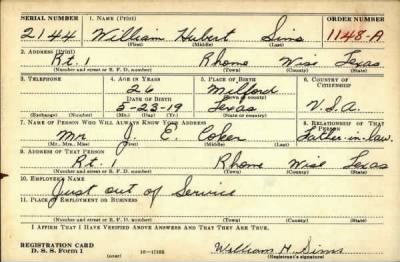 SERIAL NUMBER 1. NAME (Print) ORDER NUMBER
2144 William Hubert Sims 1148-A
(First) (Middle) (Last)
2. ADDRESS (Print)
Rt. 1 Rhome Wise Texas
(Number and street or R. F. D. number) (Town) (County) (State)
3. TELEPHONE 4. AGE IN YEARS 5. PLACE OF BIRTH 6. COUNTRY OF CITIZENSHIP
26 Milford
DATE OF BIRTH (Town or county)
5-23-19 Texas U.S.A.
(Exchange) (Number) (Mo.) (Day) (Yr.) (State or country)
7. NAME OF PERSON WHO WILL ALWAYS KNOW YOUR ADDRESS 8. RELATIONSHIP OF THAT PERSON
Mr J. E. Father-in-law
(Mr., Mrs., Miss) (First) (Middle) (Last)
9. ADDRESS OF THAT PERSON
Rt. 1 Rhome Wise Texas
(Number and street or R. F. D. number) (Town) (County) (State)
10. EMPLOYER'S NAME
Just out of Service
11. PLACE OF EMPLOYMENT OR BUSINESS
(Number and street or R. F. D. number) (Town) (County) (State)
I AFFIRM THAT I HAVE VERIFIED ABOVE ANSWERS AND THAT THEY ARE TRUE.
REGISTRATION CARD
D. S. S. Form 1 (over) William H. Sims
(Registrant's signature)